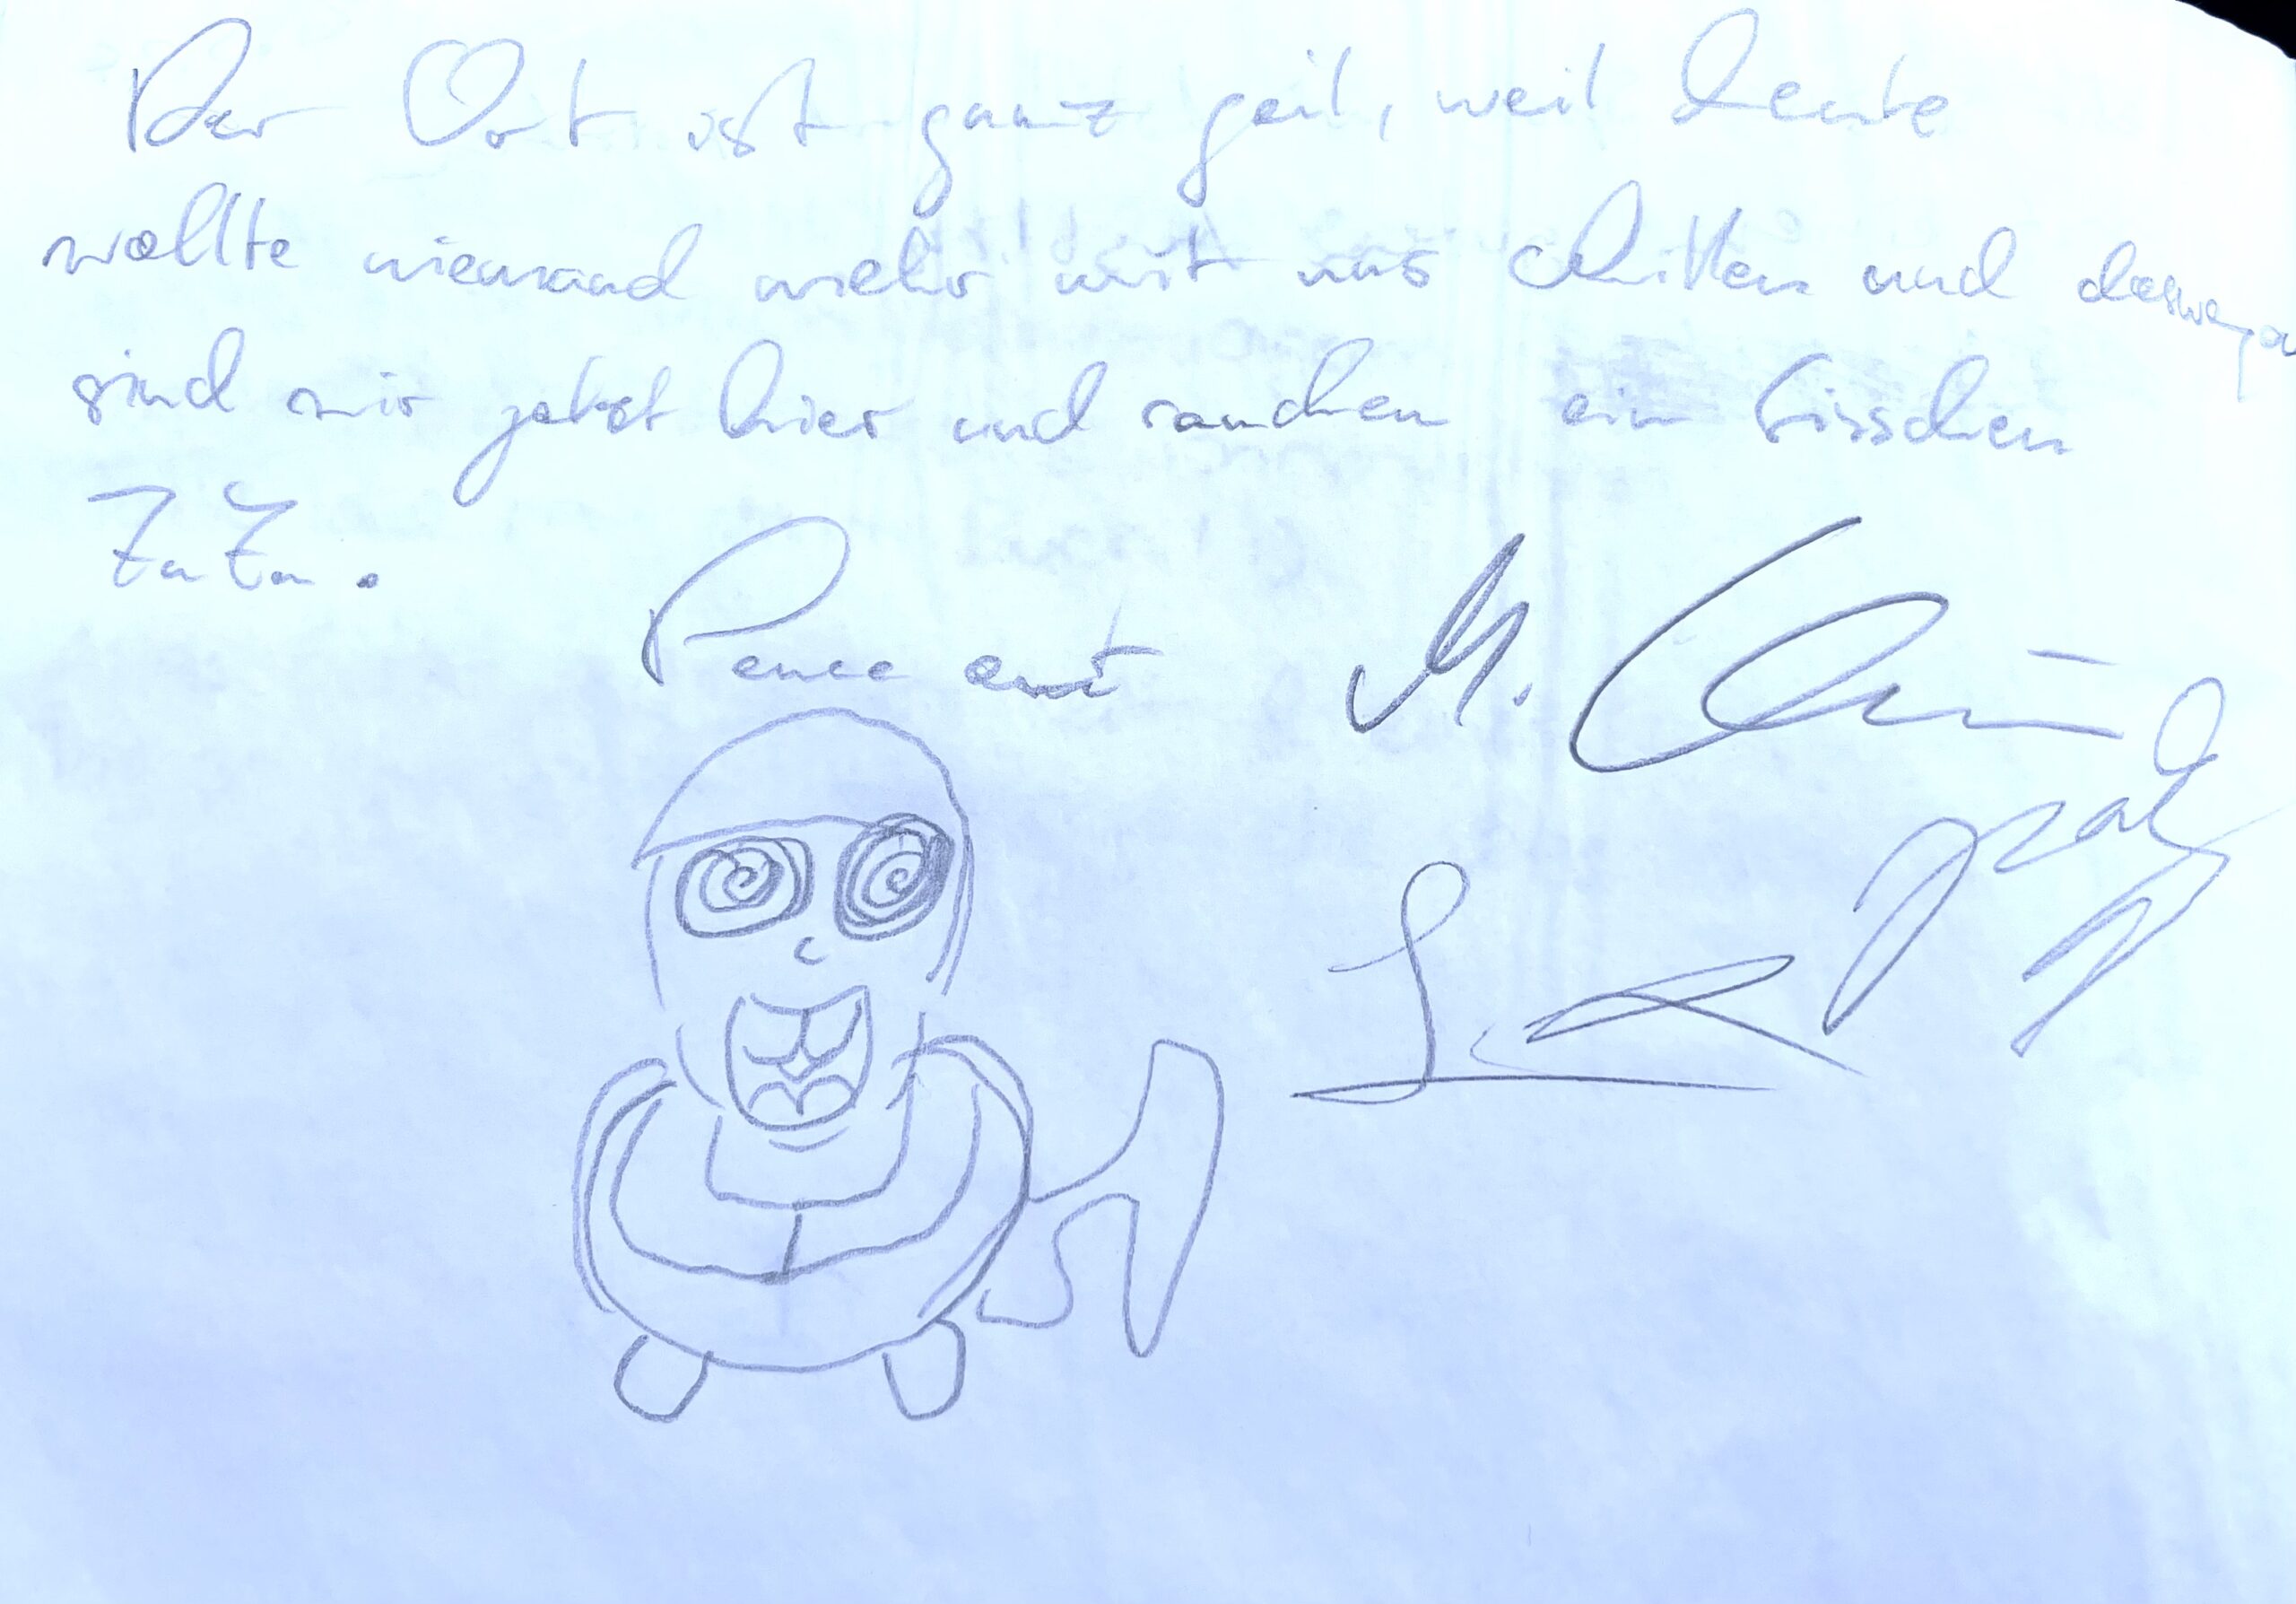 Der Ort ist ganz geil, weil heute
wollte niemand mehr mit uns chillen und deswegen
sind wir jetzt hier und rauchen ein bisschen
ZaZa.
Peace out M.